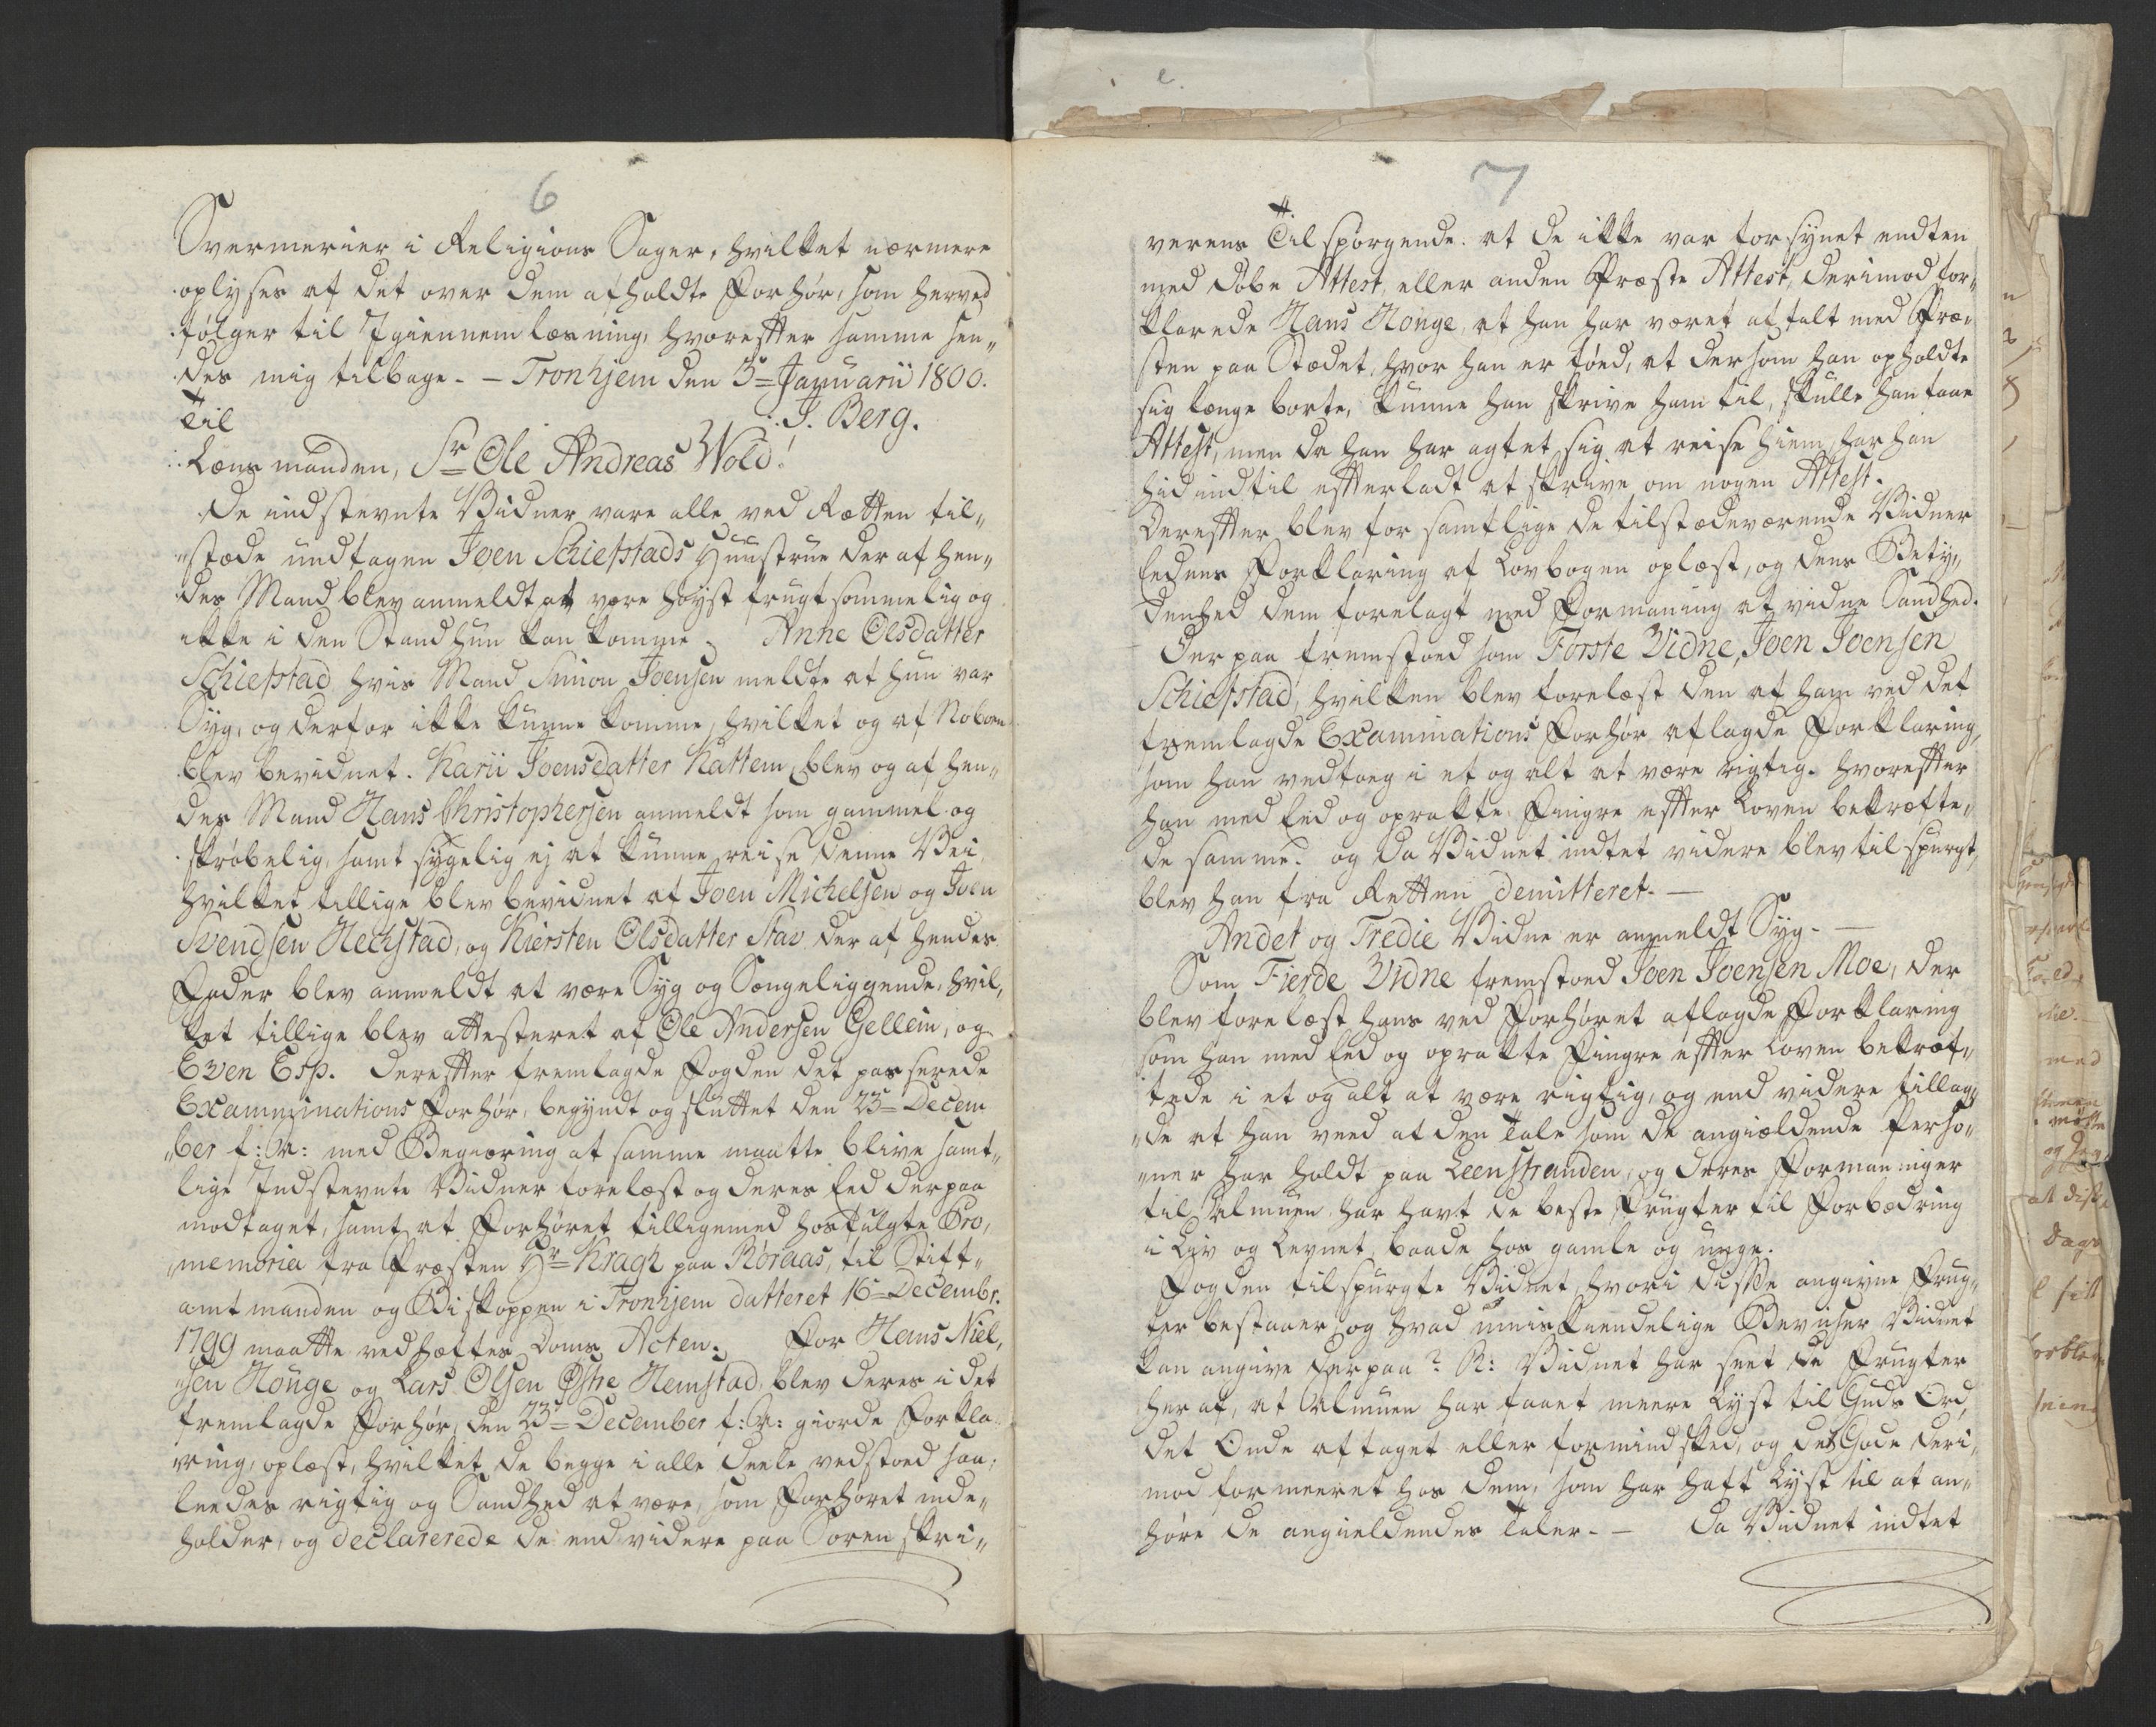 6
Svermerier i Religions Sager, hvilket nærmere
oplyses af det over dem afholdte Forhør, som herved
følger til Igiennemlæsning, hvorefter samme sen„
des mig tilbage. – Tronhjem den 3= Januarii 1800.
Til J. Berg.
Lænsmanden, Sr Ole Andreas Wold!
De indstevnte Vidner vare alle ved Rætten til„
„stæde undtagen Joen Schiefstads Huustrue der af hen„
des Mand blev anmeldt at være høyst frugtsommelig og
ikke i den Stand hun kan komme; Anne Olsdatter
Schiefstad hvis Mand Simon Joensen meldte at hun var
Syg, og derfor ikke kunne komme, hvilket og af Naboen
blev bevidnet. Karii Joensdatter Kattem, blev og af hen„
des Mand Hans Christophersen anmeldt som gammel og
skrøbelig, samt sygelig ej at kunne reise denne Vei,
hvilket tillige blev bevidnet af Joen Michelsen og Joen
Svendsen Heckstad, og Kiersten Olsdatter Stav der af hendes
Fader blev anmeldt at være Syg og Sængeliggende, hvil„
ket tillige blev attesteret af Ole Andersen Gellein, og
Even Esp. Derefter fremlagde Fogden det passerede
Examminations Forhør, begyndt og sluttet den 23= Decem
„ber f: A: med Begiæring at samme maatte blive samt„
lige Indstevnte Vidner forelæst og deres Eed derpaa
modtaget, samt at Forhøret tilligemed hosfulgte Pro„
„memoria fra Præsten Hr= Kragh paa Røraas, til Stift„
amtmanden og Biskoppen i Tronhjem datteret 16= Decembr.
1799 maatte vedhæftes Doms Acten. For Hans Niel„
„sen Houge og Lars Olsen Østre Hemstad, blev deres i det
fremlagde Forhør, den 23= December f: A: giorde Forkla„
„ring, oplæst, hvilket de begge i alle deele vedstoed saa„
leedes rigtig og Sandhed at være, som Forhøret inde„
holder, og declarerede de end videre paa Sorenskri„
7
verens Tilspørgende. at de ikke var forsynet endten
med Døbe Attest, eller anden Præste Attest, derimod for„
klarede Hans Houge, at han har været aftalt med Præ„
sten paa Stædet, hvor han er føed, at dersom han opholdte
sig længe borte, kunne han skrive ham til, skulle han faae
Attest, men da han har agtet sig at reise hiem, har han
hid indtil efterladt at skrive om nogen Attest.
Derefter blev for samtlige de tilstædeværende Vidner
Eedens Forklaring af Lovbogen oplæst, og dens Bety„
denhed dem forelagt med Formaning at vidne Sandhed.
Derpaa fremstoed som Første Vidne, Joen Joensen
Schiefstad, hvilken blev forelæst den af ham ved det
fremlagde Examinations Forhør aflagde Forklaring,
som han vedtoeg i et og alt at være rigtig. hvorefter
han med Eed og oprakte Fingre efter Loven bekræfte„
de samme. og da Vidnet intet videre blev tilspurgt,
blev han fra Retten demitteret. –
Andet og Tredie Vidne er anmeldt Syg. –
Som Fierde Vidne fremstoed Joen Joensen Moe, der
blev forelæst hans ved Forhøret aflagde Forklaring
som han med Eed og oprakte Fingre efter Loven bekræf„
tede i et og alt at være rigtig, og end videre tillag„
„de at han veed at den Tale som de angiældende Perso„
„ner har holdt paa Leenstranden, og deres Formaninger
til Almuen har havt de beste Frugter til Forbædring
i Liv og Levnet, baade hos gamle og unge.
Fogden tilspurgte Vidnet hvori disse angivne Frug„
ter bestaaer, og hvad umiskiendelige Beviser Vidnet
kan angive derpaa? R: Vidnet har seet de Frugter
heraf, at Almuen har faaet meere Lyst til Guds Ord,
det Onde aftaget eller formindsket, og det Gode deri„
mod formeeret hos dem, som har haft Lyst til at an„
høre de angieldendes Taler. – Da Vidnet indtet